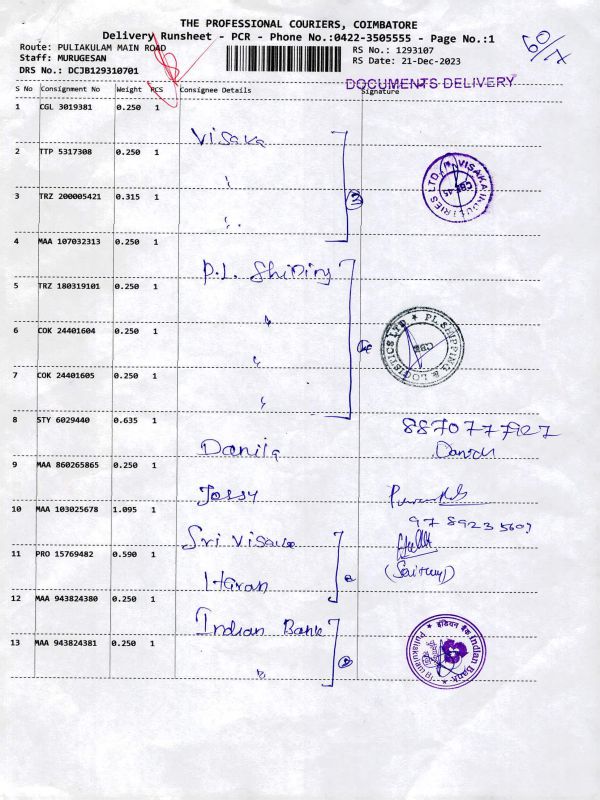 THE PROFESSIONAL COURIERS, COIMBATORE
Delivery Runsheet - PCR - Phone No.:0422-3505555 - Page No.:1
Route: PULIAKULAM MAIN ROAD RS No.: 1293107
Staff: MURUGESAN RS Date: 21-Dec-2023
DRS No.: DCJB129310701
60/7
DOCUMENTS DELIVERY
S No Consignment No Weight PCS Consignee Details Signature
1 CGL 3019381 0.250 1 Visaka
2 TTP 5317308 0.250 1 "
3 TRZ 200005421 0.315 1 "
3
VISAKA INDUSTRIES LTD. CBE-45
4 MAA 107032313 0.250 1 P.L. Shiping
5 TRZ 180319101 0.250 1 "
6 COK 24401604 0.250 1 "
7 COK 24401605 0.250 1 "
PL SHIPPING & LOGISTICS LTD CBE
8 STY 6029440 0.635 1 8870777927
9 MAA 860265865 0.250 1 Jossy
10 MAA 103025678 1.095 1 Sri Visaka 9789235607
11 PRO 15769482 0.590 1 Haran
12 MAA 943824380 0.250 1 Indian Bank
13 MAA 943824381 0.250 1 "
2
इंडियन बैंक Indian Bank Puliakulam